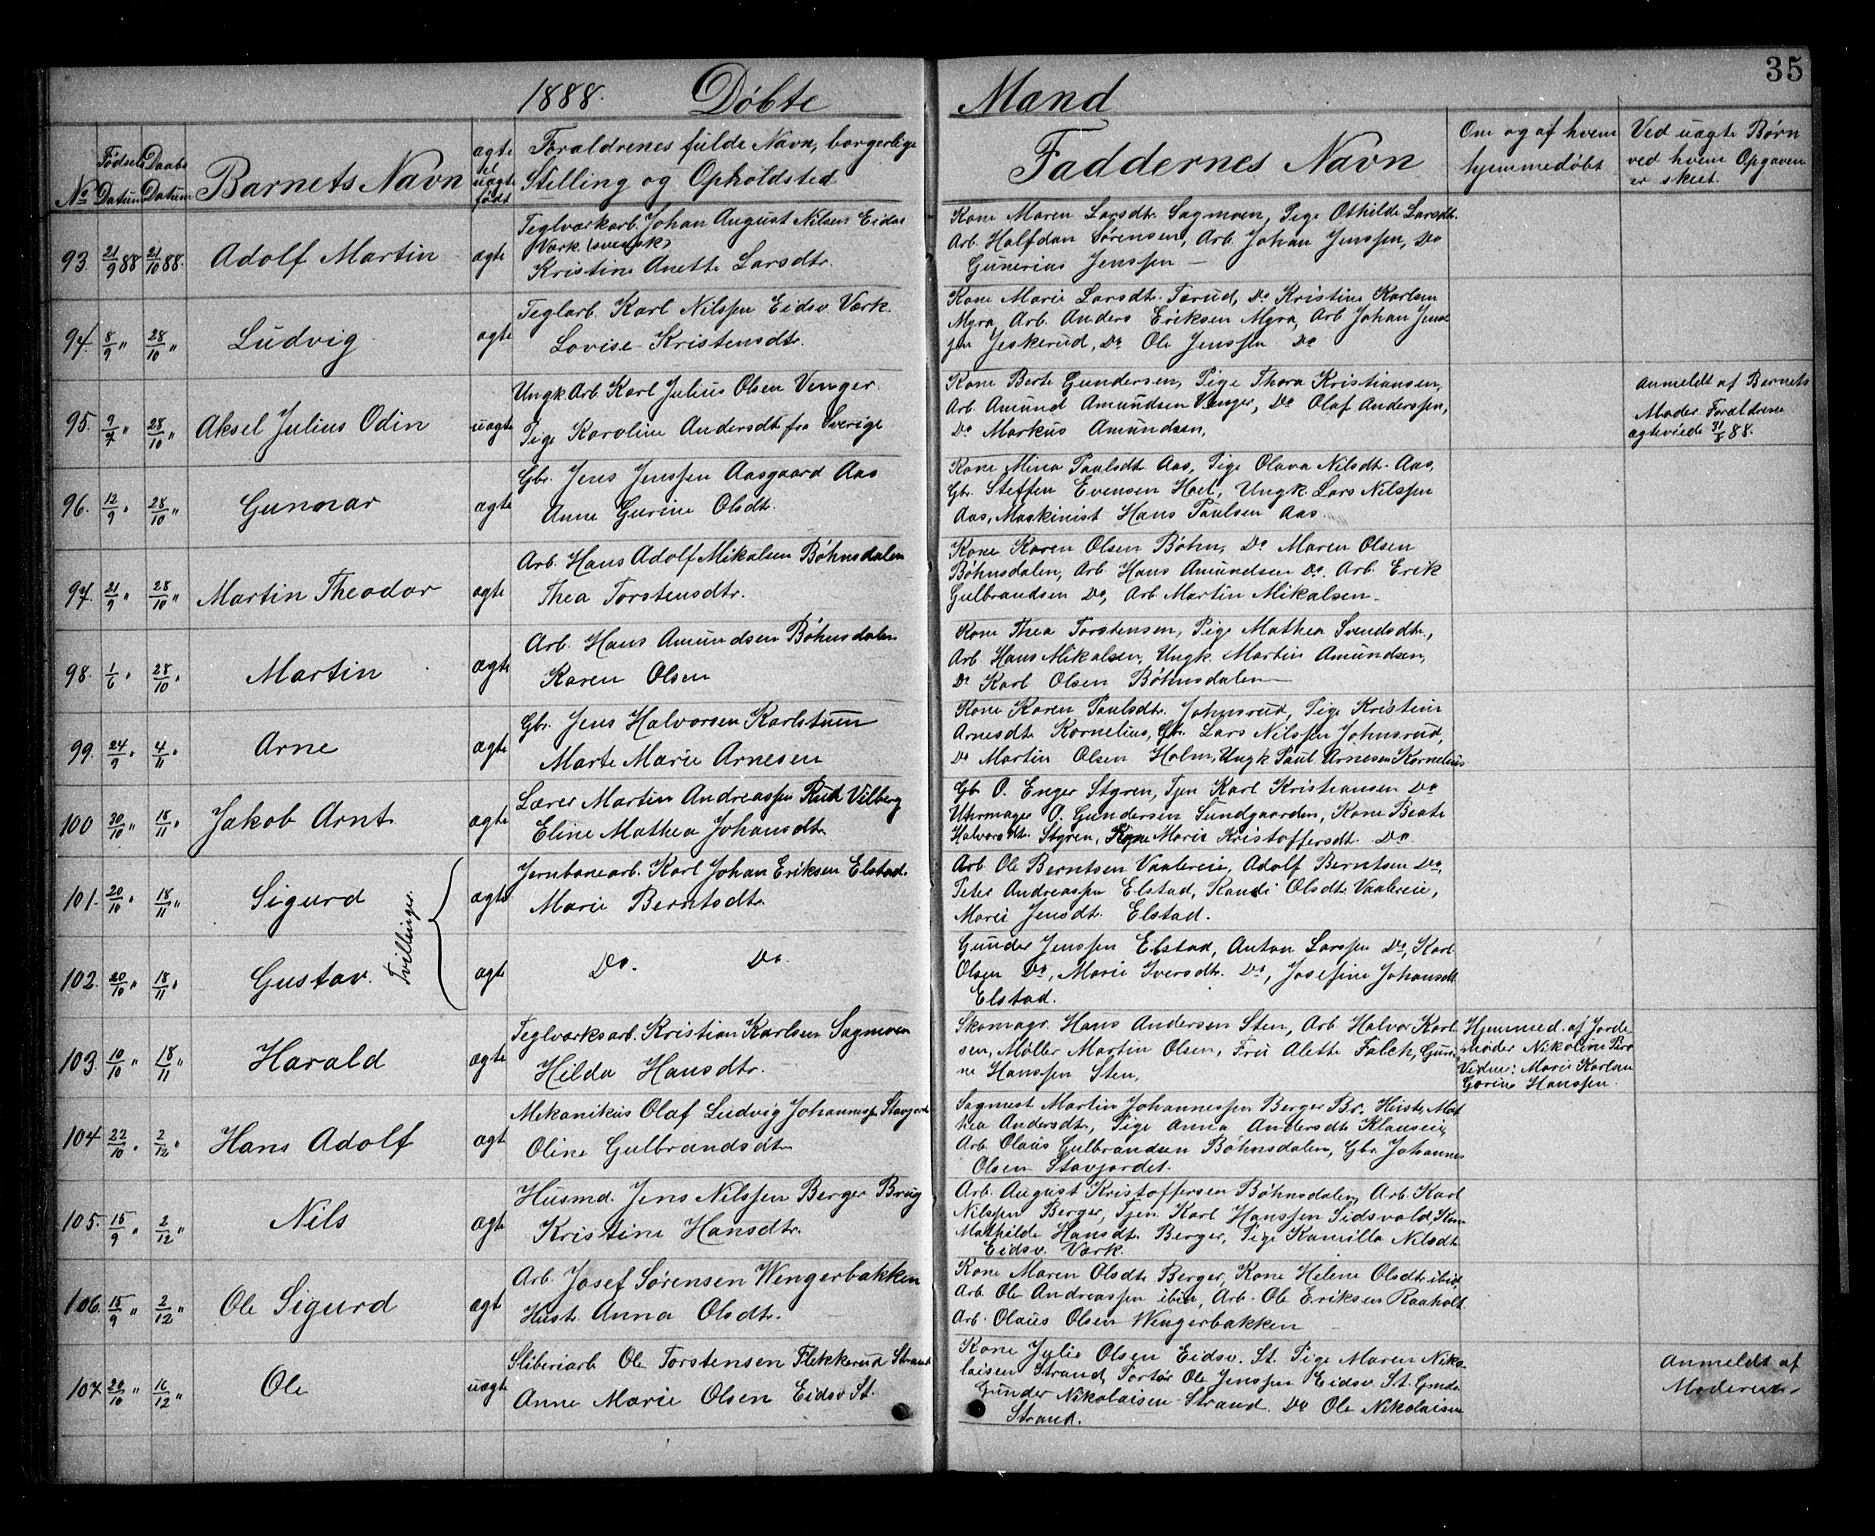 35
1888. Døbte Mænd
No Fødsels Datum Daabs Datum Barnets Navn ægte el uægte født Forældrenes fulde Navn, borgerlige Stilling og Opholdsted Faddernes Navn Om og af hvem hjemmedøbt Ved uægte Børn ved hvem Opgaven er skeet.
93. 21/9 88 21/10 88. Adolf Martin ægte Teglværkarb. Johan August Nilsen Eidsv
Værk (svensk)
Kristine Anette Larsdtr.
Kone Maren Larsdtr. Sagmoen, Pige Othilde Larsdt.
Arb. Halfdan Sørensen, Arb. Johan Jenssen, Do
Gunerius Jenssen –
94. 8/9 " 28/10 " Ludvig ægte Teglarb. Karl Nilssen Eidsv. Værk.
Lovise Kristensdtr.
Kone Marie Larsdtr. Tærud, Do Kristine Karlsen
Myra, Arb. Anders Eriksen Myra, Arb Johan Jens
sen Jeskerud, Do Ole Jenssen Do
95. 9/7 " 28/10 " Aksel Julius Odin uægte Ungk. Arb. Karl Julius Olsen Venger.
Pige Karoline Andersdt fra Sverige
Kone Berte Gundersen, Pige Thora Kristiansen,
Arb. Amund Amundsen Venger, Do Olaf Anderssen,
Do Markus Amundsen,
anmeldt af Barnets
Moder. Forældrene
ægteviede 31/8 88.
96. 12/9 " 28/10 " Gunnar ægte Gbr. Jens Jenssen Aasgaard Aas
Anne Gurine Olsdt.
Kone Mina Paulsdt. Aas, Pige Olava Nilsdt. Aas,
Gbr. Steffen Evensen Hoel, Ungk. Lars Nilssen
Aas, Maskinist Hans Paulsen Aas.
97. 21/9 " 28/10 " Martin Theodor ægte Arb. Hans Adolf Mikalsen Bøhnsdalen
Thea Torstensdtr.
Kone Karen Olsen Bøhn, Do Maren Olsen
Bøhnsdalen, Arb. Hans Amundsen Do. Arb. Erik
Gulbrandsen Do, Arb. Martin Mikalsen –
98. 1/6 " 28/10 " Martin ægte Arb. Hans Amundsen Bøhnsdalen
Karen Olsen
Kone Thea Torstensen, Pige Mathea Svendsdtr,
Arb. Hans Mikalsen, Ungk. Martin Amundsen,
Do Karl Olsen Bøhnsdalen –
99. 24/9 " 4/11 " Arne ægte Gbr. Jens Halvorsen Karlstuen
Marte Marie Arnesen
Kone Karen Paulsdtr. Johnsrud, Pige Kristin
Arnesdtr Kornelius, Gbr. Lars Nilssen Johnsrud,
Do Martin Olsen Holm, Ungk Paul Arnesen Kornelius
100 30/10 " 18/11 " Jakob Arnt ægte Lærer Martin Andreassen Rud Vilberg
Eline Mathea Johansdtr
Gbr O. Enger Styren, Tjen Karl Kristiansen Do
Uhrmager O. Gundersen Sundgaarden, Kone Beate
Halvorsdt. Styren, Kone Marie Kristoffersdt. Do
101. 20/10 " 18/11 " Sigurd Tvillinger. ægte Jernbanearb. Karl Johan Eriksen Elstad.
Marie Berntsdtr.
Arb Ole Berntsen Vaalereie, Adolf Berntsen Do,
Peter Andreassen Elstad, Kandi Olsdtr Vaalereie,
Marie Jensdt. Elstad.
102. 20/10 " 18/11 " Gustav. ægt Do. Do.
Gunder Jenssen Elstad, Anton Larssen Do, Karl
Olsen Do, Marie Iversdtr. Do, Josefine Johansdt
Elstad.
103. 10/10 " 18/11 " Harald ægte Teglværksarb. Kristian Karlsen Sagmoen
Hilda Hansdtr.
Skomagr. Hans Andersen Sten, Arb Halvor Karl
sen, Møller Martin Olsen, Fru Alette Falch, Guri
ne Hanssen Sten,
Hjemmed. af Jorde
moder Nikoline
Vidne: Marie Karlsen
Gorine Hanssen.
104 22/10 " 2/12 " Hans Adolf ægt Mekanikus Olaf Ludvig Johannessen Stavjordet
Oline Gulbrandsdtr
Sagmest Martin Johannessen Berger Br. Hustr. Mat
hea Andersdt, Pige Anna Andersdt Klauseie,
Arb. Olaus Gulbrandsen Bøhnsdalen, Gbr. Johannes
Olsen Stavjordet.
105. 15/9 " 2/12 " Nils ægt Husmd. Jens Nilssen Berger Brug
Kristine Hansdtr.
Arb. August Kristoffersen Bøhnsdalen, Arb. Karl
Nilssen Berger, Tjen Karl Hanssen Eidsvold, Kone
Mathilde Hansdt. Berger, Pige Kamilla Nilsdt
Eidsv. Værk.
106. 15/9 " 2/12 " Ole Sigurd ægt Arb. Josef Sørensen Wengerbakken
Hust. Anna Olsdtr.
Kone Maren Olsdtr Berger, Kone Helene Olsdtr ibid,
Arb. Ole Andreassen ibid, Arb. Ole Eriksen Raaholt
Arb. Olaus Olsen Wengerbakken
107 20/10 " 16/12 " Ole uægte Sliberiarb Ole Torstensen Flekkerud Strand
Anne Marie Olsen Eidsv. St.
Kone Julie Olsen Eidsv. St. Pige Maren Niko
laisen Strand, Portør Ole Jenssen Eidsv. St. Gmd.
Gunder Nikolaisen Strand. Do Ole Nikolaisen
Strand.
Anmeldt af
Moderen –